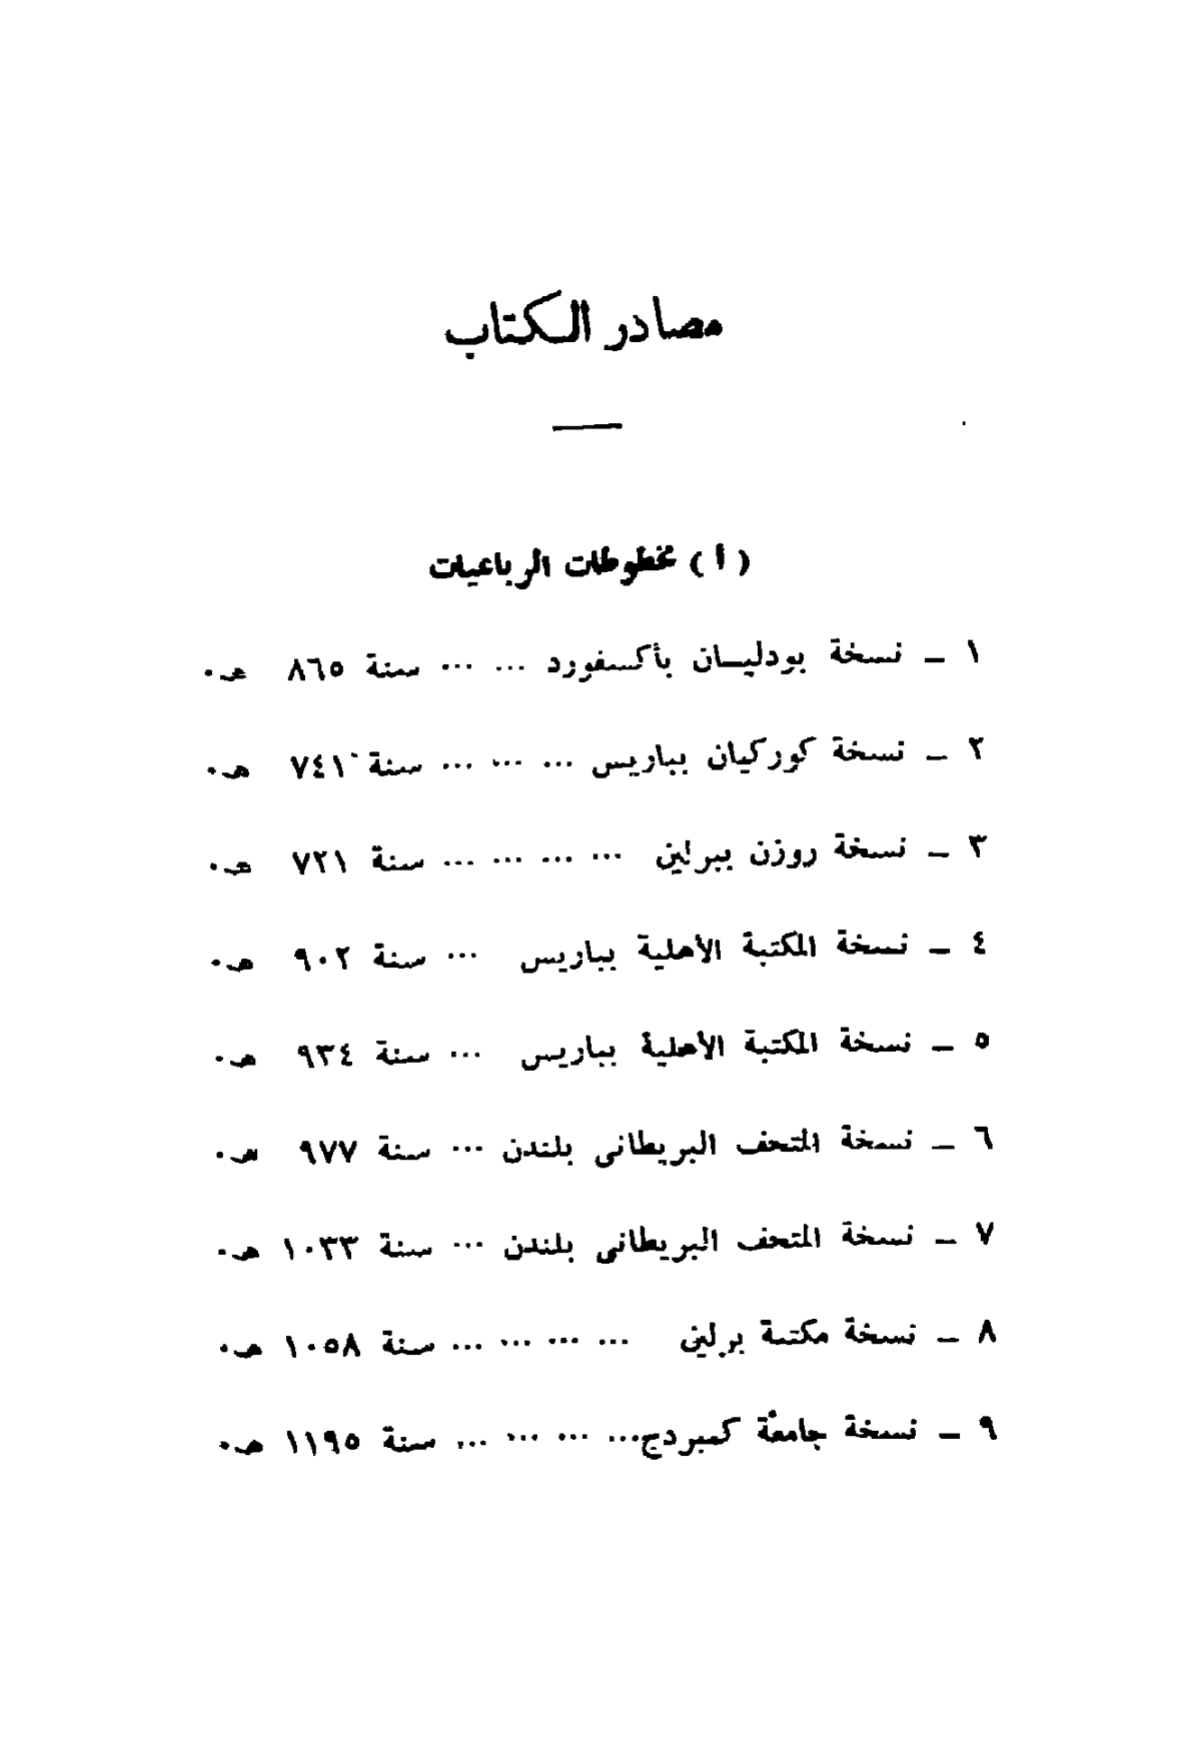 مصادر الكتاب
( أ ) مخطوطات الرباعيات
١ ــ نسخة بودليان بأكسفورد ... ... سنة ٨٦٥ هـ.
٢ ــ نسخة كوركيان بباريس ... ... ... سنة ٧٤١ هـ.
٣ ــ نسخة روزن ببرلين ... ... ... ... سنة ٧٢١ هـ.
٤ ــ نسخة المكتبة الأهلية بباريس ... سنة ٩٠٢ هـ.
٥ ــ نسخة المكتبة الأهلية بباريس ... سنة ٩٣٤ هـ.
٦ ــ نسخة المتحف البريطانى بلندن ... سنة ٩٧٧ هـ.
٧ ــ نسخة المتحف البريطانى بلندن ... سنة ١٠٣٣ هـ.
٨ ــ نسخة مكتبة برلين ... ... ... ... سنة ١٠٥٨ هـ.
٩ ــ نسخة جامعة كمبردج ... ... ... ... سنة ١١٩٥ هـ.